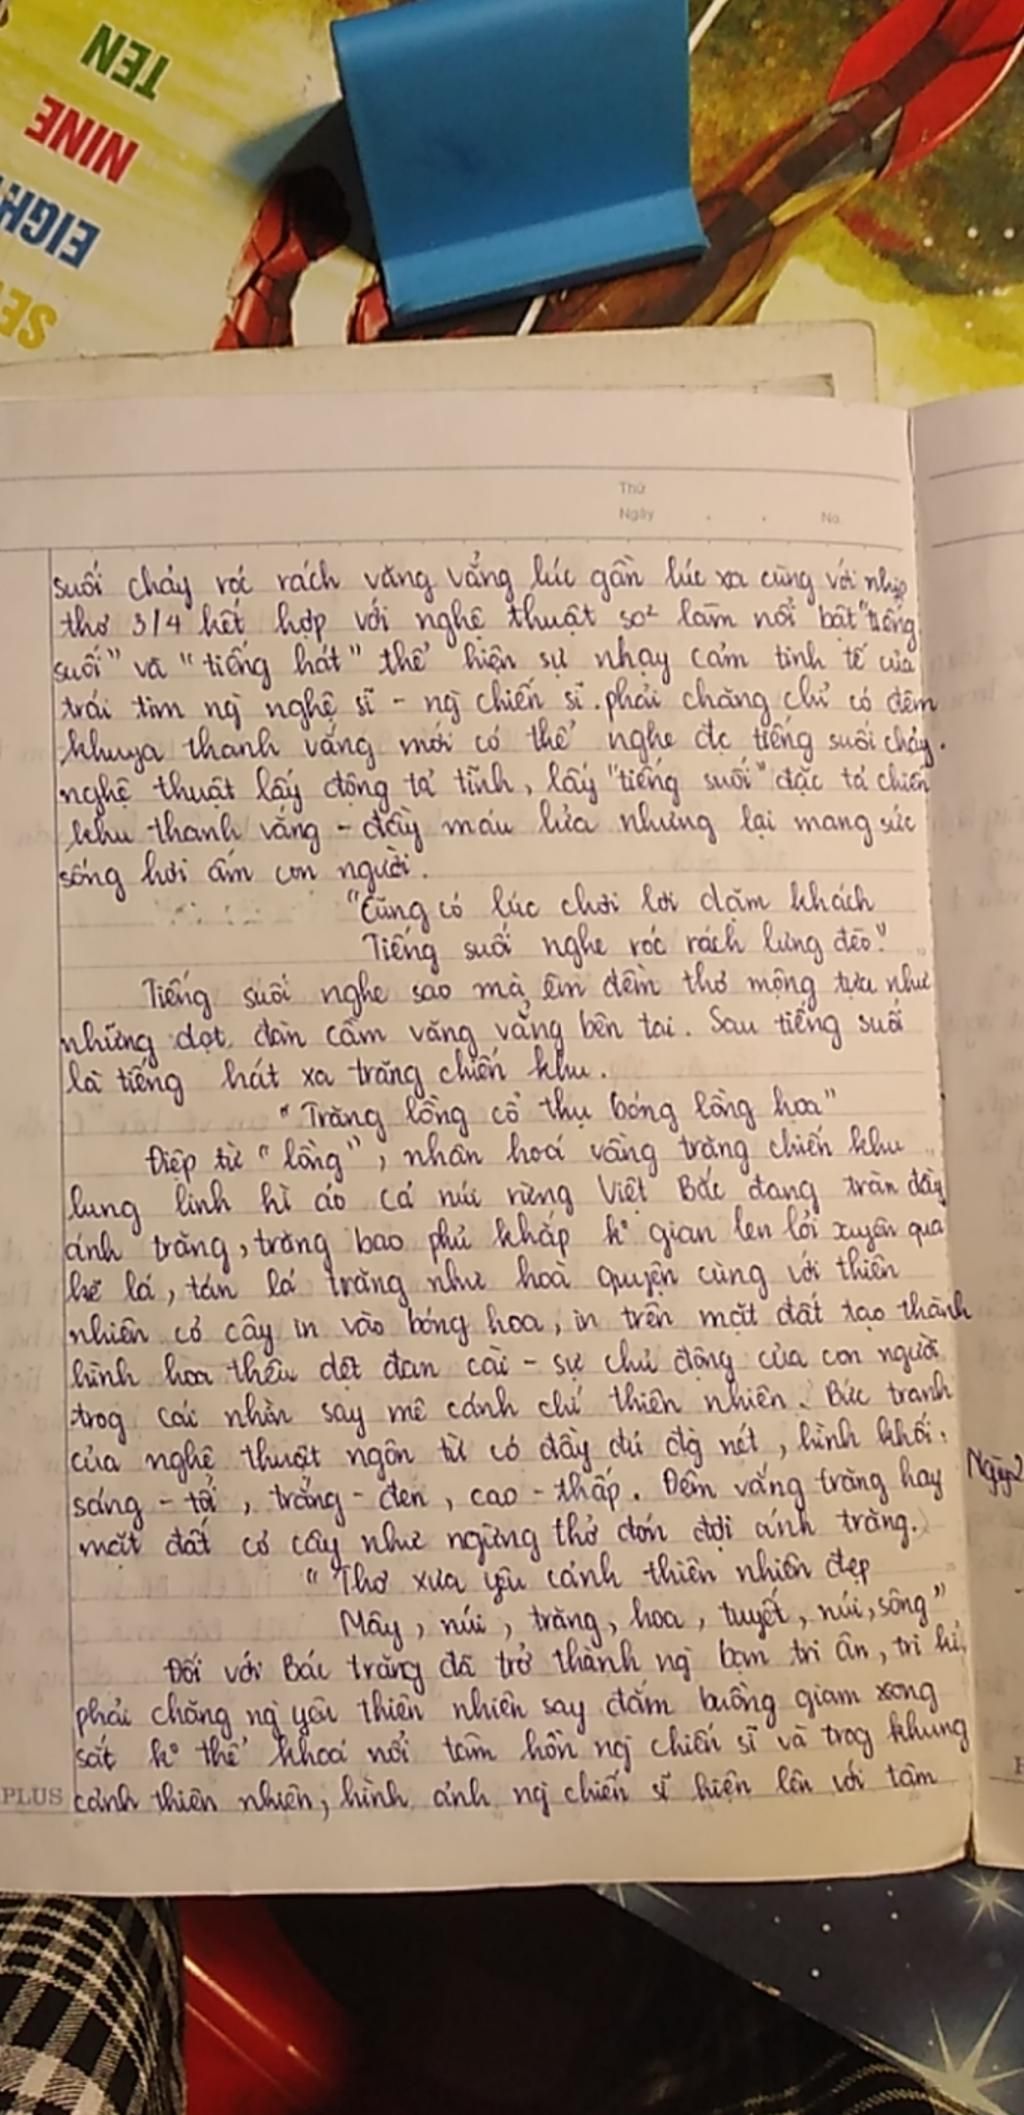 TEN
NINE
EIGH
SE
Thứ
Ngày . . No.
suối chảy róc rách văng vẳng lúc gần lúc xa cùng với nhịp
thơ 3/4 kết hợp với nghệ thuật so² làm nổi bật "tiếng
suối" và "tiếng hát" thể hiện sự nhạy cảm tinh tế của
trái tim ng̀ nghệ sĩ - ng̀ chiến sĩ. phải chăng chỉ có đêm
khuya thanh vắng mới có thể nghe đc tiếng suối chảy.
nghệ thuật lấy động tả tĩnh, lấy "tiếng suối" đặc tả chiến
khu thanh vắng - đầy máu lửa nhưng lại mang sức
sống hơi ấm con người.
"Cũng có lúc chơi lơi dặm khách
Tiếng suối nghe róc rách lưng đèo"
Tiếng suối nghe sao mà êm đềm thơ mộng tựa như
những dọt đàn cầm văng vẳng bên tai. Sau tiếng suối
là tiếng hát xa trăng chiến khu.
"Trăng lồng cổ thụ bóng lồng hoa"
Điệp từ "lồng", nhân hoá vầng trăng chiến khu
lung linh hì ảo cả núi rừng Việt Bắc đang tràn đầy
ánh trăng, trăng bao phủ khắp k° gian len lỏi xuyên qua
kẽ lá, tán lá trăng như hoà quyện cùng với thiên
nhiên cỏ cây in vào bóng hoa, in trên mặt đất tạo thành
hình hoa thêu dệt đan cài - sự chủ động của con người
trog cái nhìn say mê cảnh chí thiên nhiên. Bức tranh
của nghệ thuật ngôn từ có đầy đủ đg̀ nét, hình khối.
sáng - tối, trắng - đen, cao - thấp. Đêm vắng trăng hay
mặt đất cỏ cây như ngừng thở đón đợi ánh trăng.
"Thơ xưa yêu cảnh thiên nhiên đẹp
Mây, núi, trăng, hoa, tuyết, núi, sông"
Đối với Bác trăng đã trở thành ng̀ bạn tri ân, tri kỉ,
phải chăng ng̀ yêu thiên nhiên say đắm buồng giam xong
sắt k° thể khoá nổi tâm hồn ng̀ chiến sĩ và trog khung
cảnh thiên nhiên, hình ảnh ng̀ chiến sĩ hiện lên với tâm
PLUS